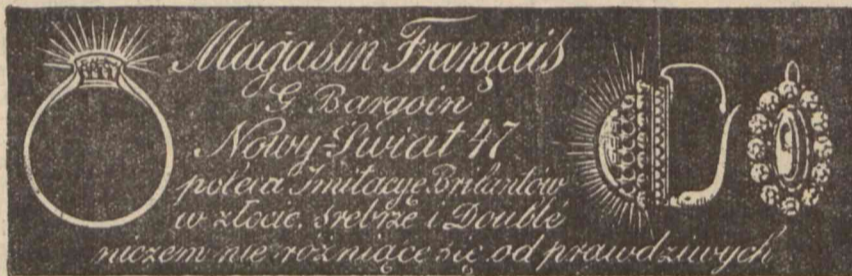 Magasin Français
G. Bargoin
Nowy-Świat 47
poleca Imitacye Brilantów
w złocie, srebrze i Doublé
niczem nie rożniące się od prawdziwych